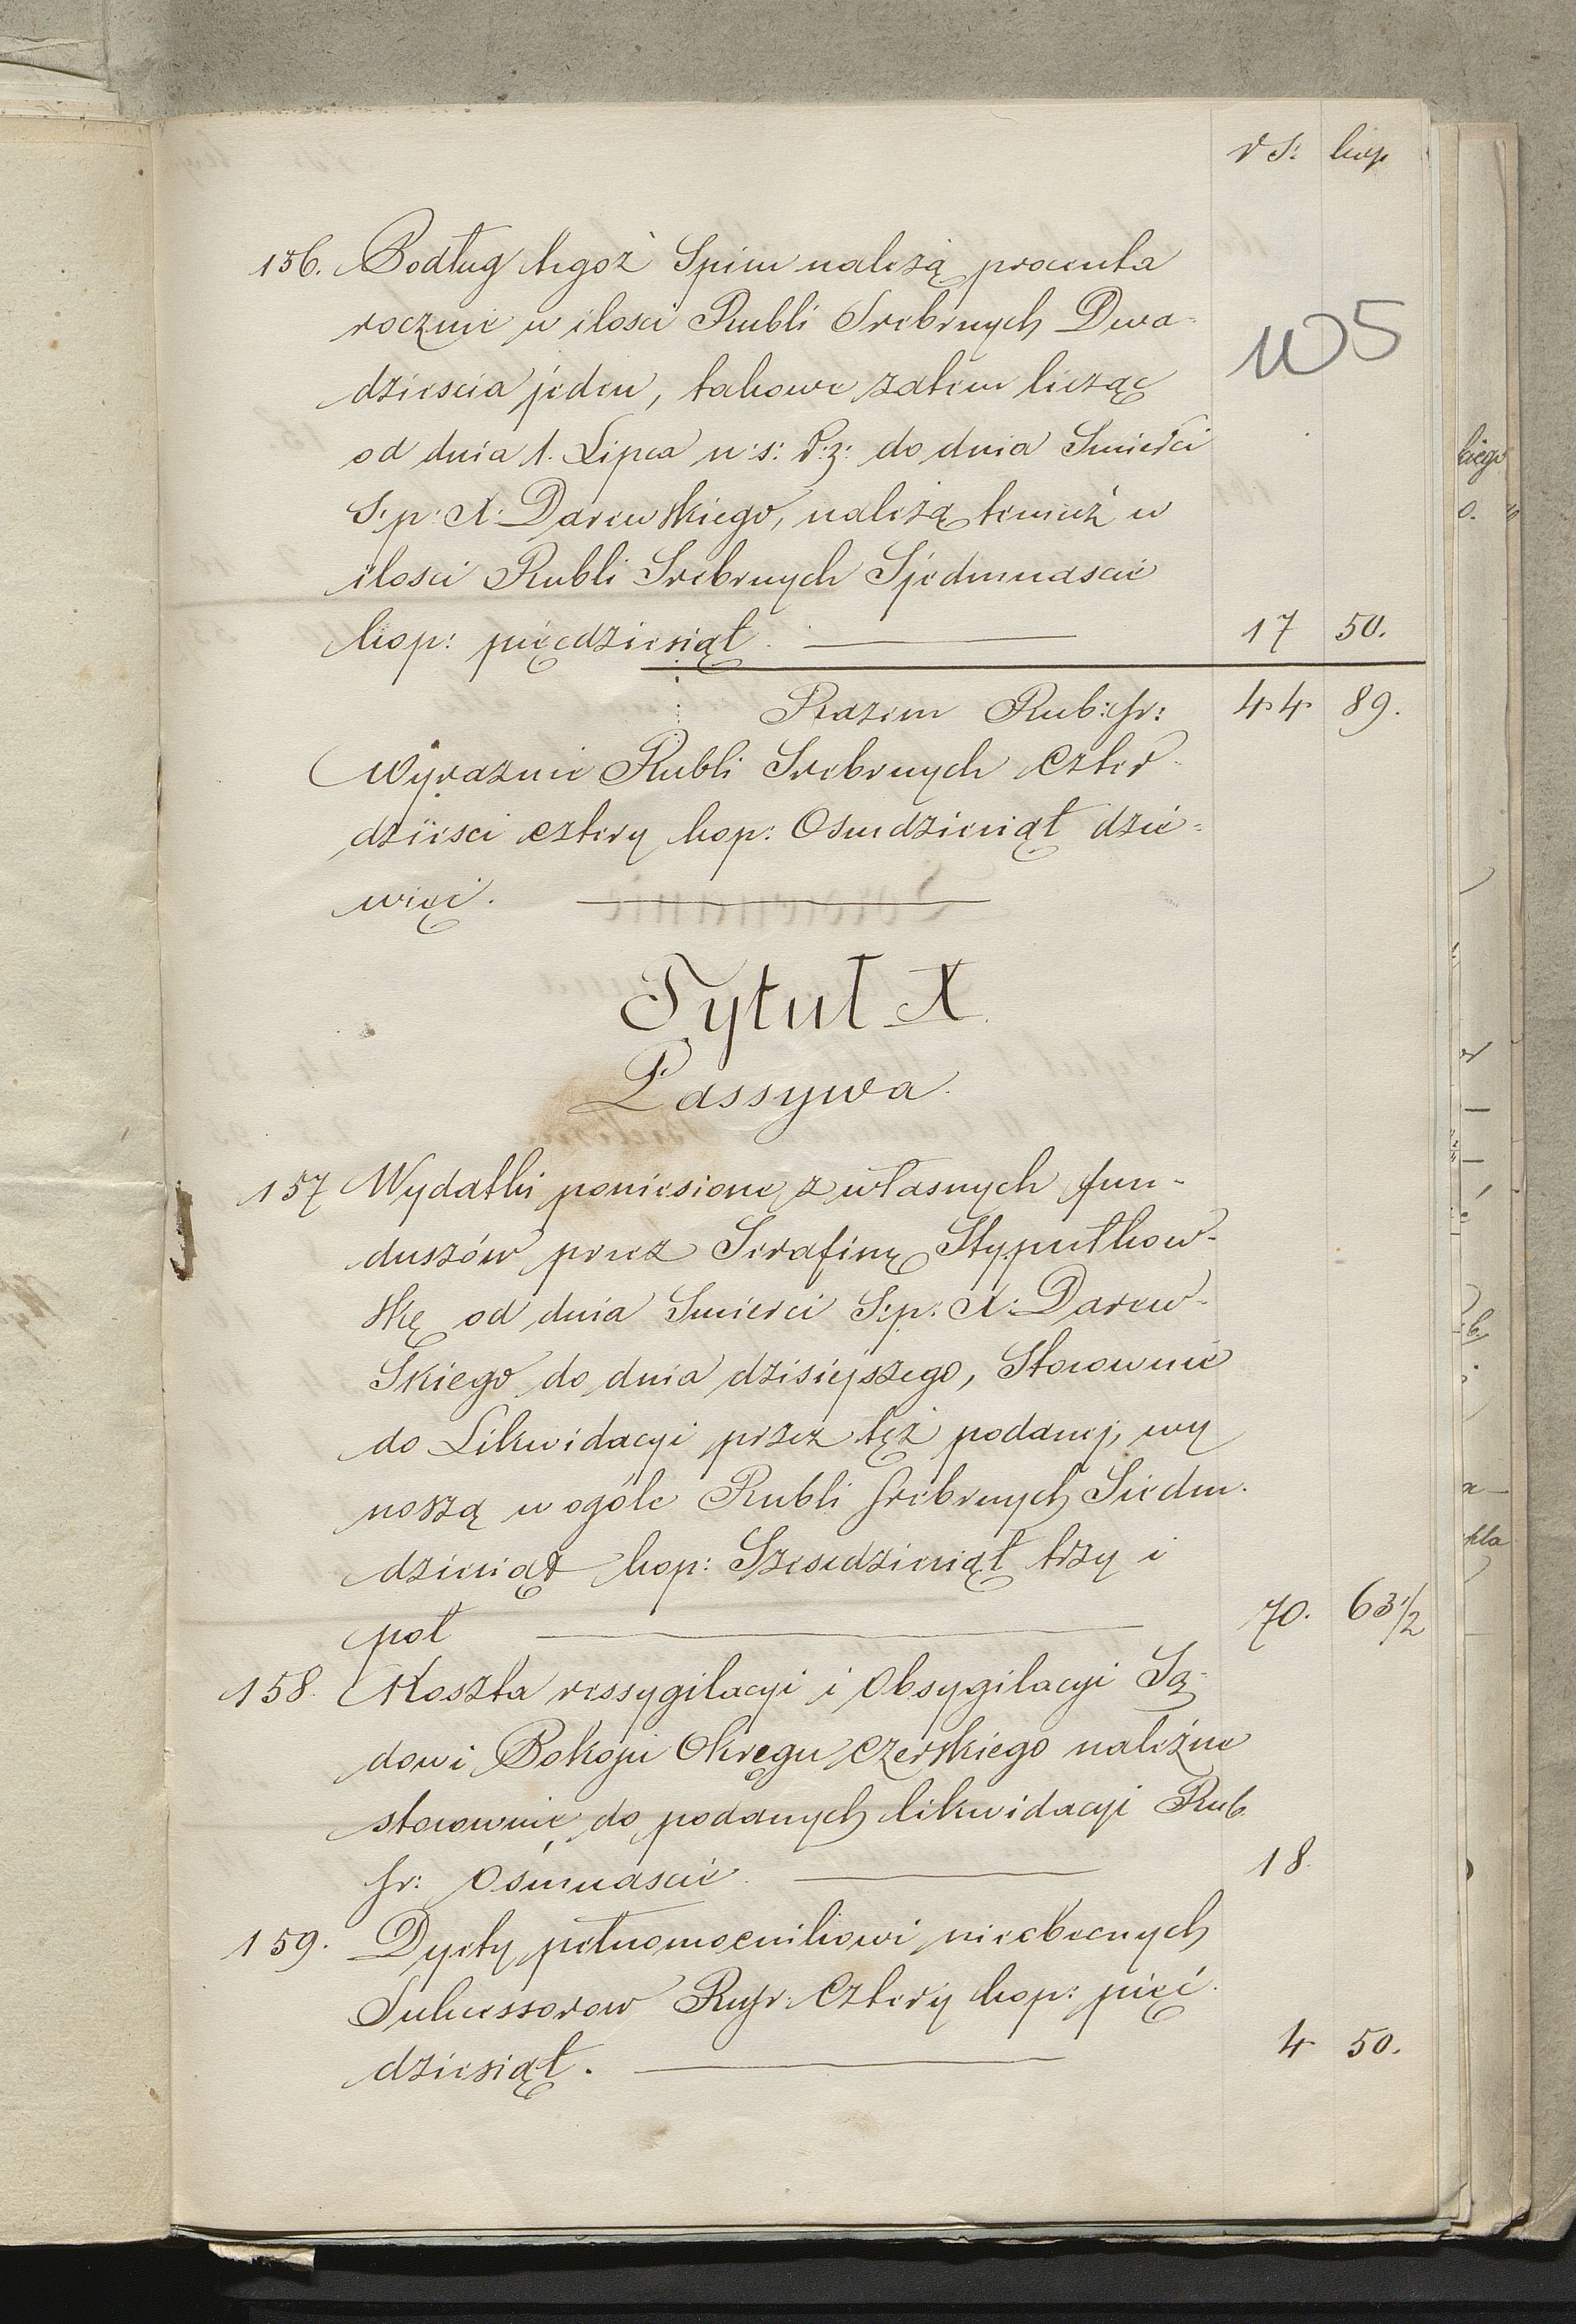 rs: kop
105
156. Podług tegoż Spisu należą procenta
rocznie w ilosci Rubli Srebrnych Dwa-
dziescia jeden, takowe zatem licząc
od dnia 1. Lipca n:s: r:z: do dnia Smierci
S:p: X: Darewskiego, należą temuż w
ilosci Rubli Srebrnych Siedmnascie
kop: pięćdziesiąt. 17 50.
Razem Rub:sr: 44 89.
Wyraznie Rubli Srebrnych czter-
dziesci cztery kop: Osmdziesiąt dzie-
więć.
Tytuł X.
Passywa.
157 Wydatki poniesione z własnych fun-
duszów przez Serafinę Stypułkow-
skę od dnia Smierci S:p: X: Darew-
Skiego do dnia dzisiejszego, Stosownie
do Likwidacyi przez tęż podanej, wy
noszą w ogóle Rubli srebrnych Siedm-
dziesiąt kop: Szescdziesiąt trzy i
poł 70. 63 1/2
158. Koszta ressygilacyi i Obsygilacyi Są-
dowi Pokoju Okręgu Czerskiego należne
stosownie do podanych likwidacyi Rub
sr: Ośmnascie. 18.
159. Dyety pełnomocnikowi nieobecnych
Sukcessorow Rusr: Cztery kop: pięć-
dziesiąt. 4 50.